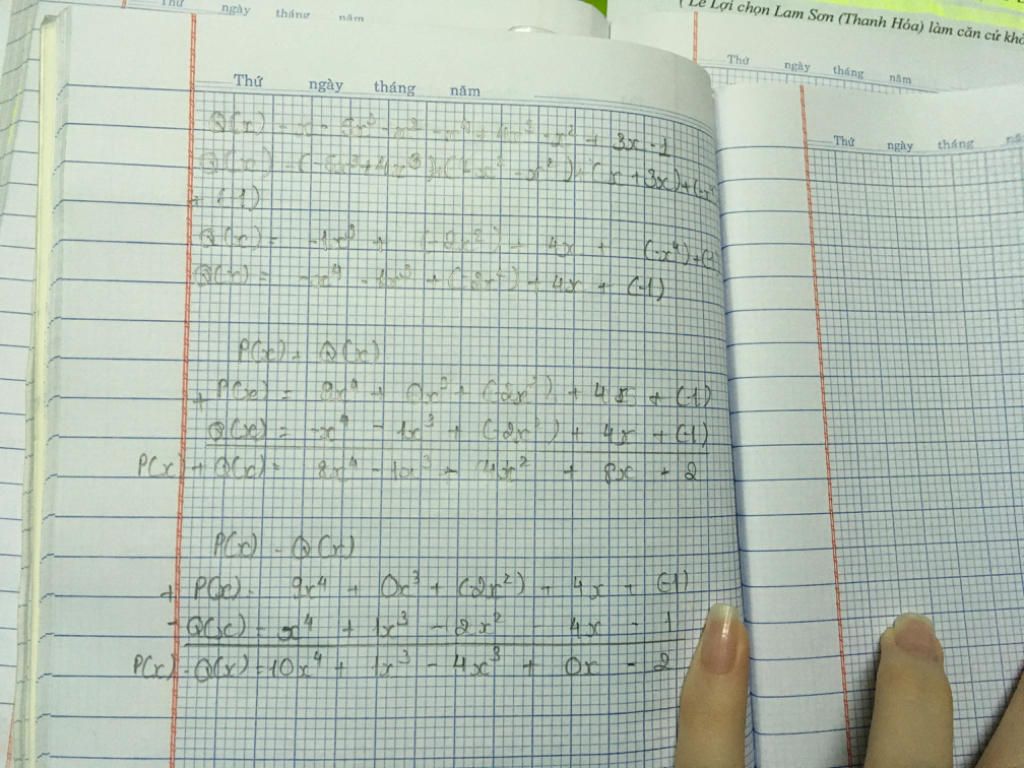 ( Lê Lợi chọn Lam Sơn (Thanh Hóa) làm căn cứ khở
Thứ ngày tháng năm
Thứ ngày tháng năm
Thứ ngày tháng năm
Thứ ngày tháng nă
Q(x) = x - 5x³ - x² - x⁴ + 4x³ - x² + 3x - 1
Q(x) = (-5x³ + 4x³) + (-x² - x²) + (x + 3x) + (-x⁴
+ (-1)
Q(x) = -1x³ + (-2x²) + 4x + (-x⁴) + (-1
Q(x) = -x⁴ - 1x³ + (-2x²) + 4x + (-1)
P(x) + Q(x)
+ P(x) = 9x⁴ + 0x³ + (-2x²) + 4x + (-1)
Q(x) = -x⁴ - 1x³ + (-2x²) + 4x + (-1)
P(x) + Q(x) = 8x⁴ - 1x³ - 4x² + 8x + 2
P(x) - Q(x)
+ P(x) = 9x⁴ + 0x³ + (-2x²) + 4x + (-1)
- Q(x) = x⁴ + 1x³ - 2x² - 4x - 1
P(x) - Q(x) = 10x⁴ + 1x³ - 4x³ + 0x - 2